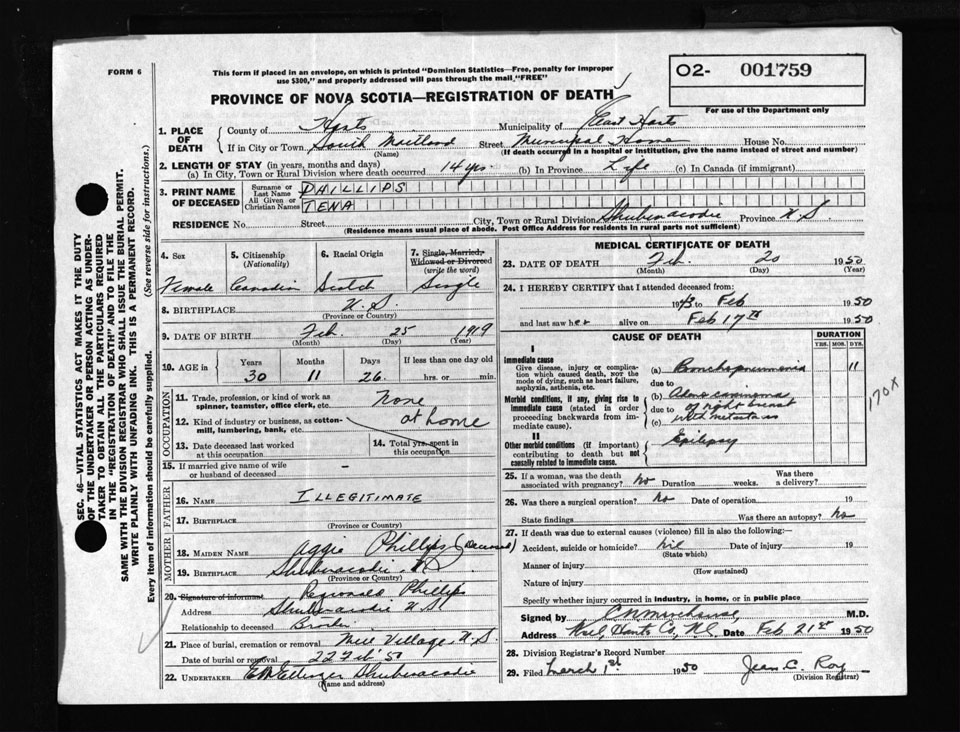 FORM 6
This form if placed in an envelope, on which is printed "Dominion Statistics—Free, penalty for improper
use $300," and properly addressed will pass through the mail "FREE"
PROVINCE OF NOVA SCOTIA—REGISTRATION OF DEATH
O2- 001759
For use of the Department only
SEC. 46—VITAL STATISTICS ACT MAKES IT THE DUTY
OF THE UNDERTAKER OR PERSON ACTING AS UNDER-
TAKER TO OBTAIN ALL THE PARTICULARS REQUIRED
IN THE "REGISTRATION OF DEATH" AND TO FILE THE
SAME WITH THE DIVISION REGISTRAR WHO SHALL ISSUE THE BURIAL PERMIT.
WRITE PLAINLY WITH UNFADING INK. THIS IS A PERMANENT RECORD.
Every item of information should be carefully supplied. (See reverse side for instructions.)
1. PLACE OF DEATH
County of Hants Municipality of East Hants
If in City or Town South Maitland Street Municipal Home House No.
(Name) (If death occurred in a hospital or institution, give the name instead of street and number)
2. LENGTH OF STAY (in years, months and days)
(a) In City, Town or Rural Division where death occurred 14 yrs (b) In Province Life (c) In Canada (if immigrant)
3. PRINT NAME OF DECEASED
Surname or Last Name PHILLIPS
All Given or Christian Names TENA
RESIDENCE No. Street City, Town or Rural Division Shubenacadie Province N.S
(Residence means usual place of abode. Post Office Address for residents in rural parts not sufficient)
4. Sex Female
5. Citizenship (Nationality) Canadian
6. Racial Origin Scotch
7. Single, Married, Widowed or Divorced (write the word) Single
8. BIRTHPLACE N.S.
(Province or Country)
9. DATE OF BIRTH Feb. 25 1919
(Month) (Day) (Year)
10. AGE in Years Months Days If less than one day old
30 11 26 hrs. or min.
OCCUPATION
11. Trade, profession, or kind of work as spinner, teamster, office clerk, etc. None
12. Kind of industry or business, as cotton-mill, lumbering, bank, etc. at home
13. Date deceased last worked at this occupation
14. Total yrs. spent in this occupation
15. If married give name of wife or husband of deceased –
FATHER
16. NAME ILLEGITIMATE
17. BIRTHPLACE
(Province or Country)
MOTHER
18. MAIDEN NAME Aggie Phillips (Deceased)
19. BIRTHPLACE Shubenacadie N.S
(Province or Country)
20. Signature of informant Reginald Phillips
Address Shubenacadie N.S.
Relationship to deceased Brother
21. Place of burial, cremation or removal Mill Village N.S.
Date of burial or removal 22 Feb' 50
22. UNDERTAKER Shubenacadie
(Name and address)
MEDICAL CERTIFICATE OF DEATH
23. DATE OF DEATH Feb. 20 1950
(Month) (Day) (Year)
24. I HEREBY CERTIFY that I attended deceased from:
to Feb 1950
and last saw her alive on Feb 17th 1950
CAUSE OF DEATH
DURATION
YRS. MOS. DYS.
I
Immediate cause
Give disease, injury or complication which caused death, NOR the mode of dying, such as heart failure, asphyxia, asthenia, etc.
(a) Bronchopneumonia 11
due to
Morbid conditions, if any, giving rise to immediate cause (stated in order proceeding backwards from immediate cause).
(b) Adenocarcinoma
due to of right breast
(c) with metastases
170X
II
Other morbid conditions (if important) contributing to death but not causally related to immediate cause.
Epilepsy
25. If a woman, was the death associated with pregnancy? No Duration weeks. Was there a delivery?
26. Was there a surgical operation? No Date of operation 19
State findings Was there an autopsy? No
27. If death was due to external causes (violence) fill in also the following:
Accident, suicide or homicide? nil Date of injury 19
(State which)
Manner of injury
(How sustained)
Nature of injury
Specify whether injury occurred in industry, in home, or in public place
Signed by M.D.
Address Hants Co, Date Feb 21st 1950
28. Division Registrar's Record Number
29. Filed March 1st 1950 Jean C. Roy
(Division Registrar)